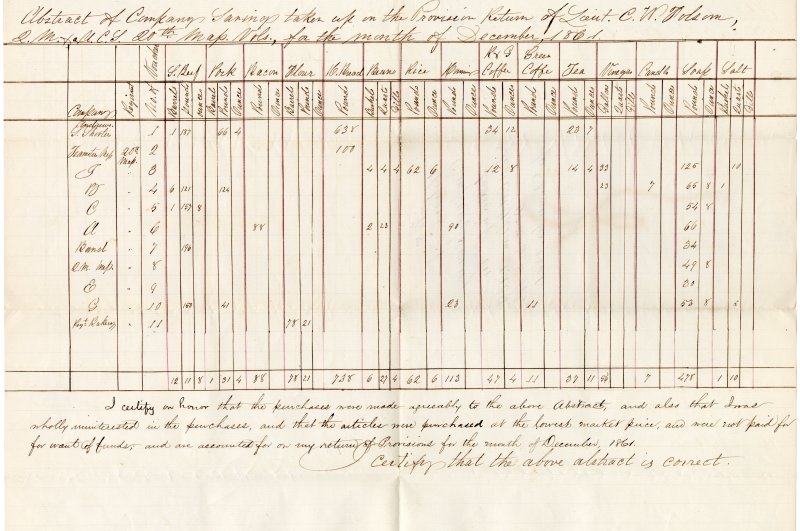 Abstract of Company Savings taken up on the Provision Return of Lieut. C. W. Folsom,
Q. M. & A. C. S. 20th Mass. Vols., for the month of December 1861.
Company Regiment No. of Voucher S. Beef Pork Bacon Flour H. Bread Beans Rice Hominy R & G Coffee Green Coffee Tea Vinegar Candles Soap Salt
Barrels Pounds Ounces Barrel Pounds Ounces Pounds Ounces Barrel Pounds Ounces Pounds Bushels Quarts Gills Pounds Ounces Pounds Ounces Pounds Ounces Pounds Ounces Pounds Ounces Gallons Quarts Gills Pounds Ounces Pounds Ounces Bushels Quarts Gills
1 1 187 66 4 638 34 12 23 7
Teamsters Mess 20th Mass. 2 100
I " 3 4 4 4 62 6 12 8 14 4 33 125 10
" 4 6 121 124 23 7 65 8 1
C " 5 1 157 8 54 8
A " 6 88 2 23 90 66
Band " 7 196 34
Q.M. Dept. " 8 49 8
E " 9 30
G " 10 150 41 23 11 53 8
Regt. Bakery " 11 78 21
12 11 8 1 31 4 88 78 21 738 6 27 4 62 6 113 47 4 11 37 11 56 7 478 1 10
I certify on honor that the purchases were made agreeably to the above Abstract, and also that I was
wholly uninterested in the purchases, and that the articles were purchased at the lowest market price, and were not paid for
for want of funds, and are accounted for on my return of Provisions for the month of December, 1861.
Certify that the above abstract is correct.